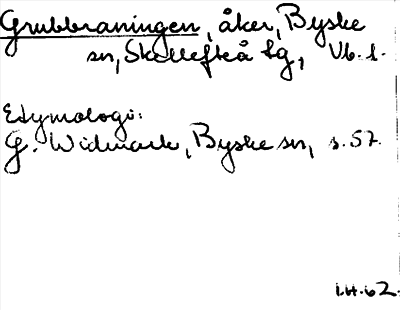 Grubbraningen, åker, Byske
sn, Skellefteå tg, Vb. l.
Etymologi:
G. Widmark, Byske sn, s. 57.
I.H. 62.